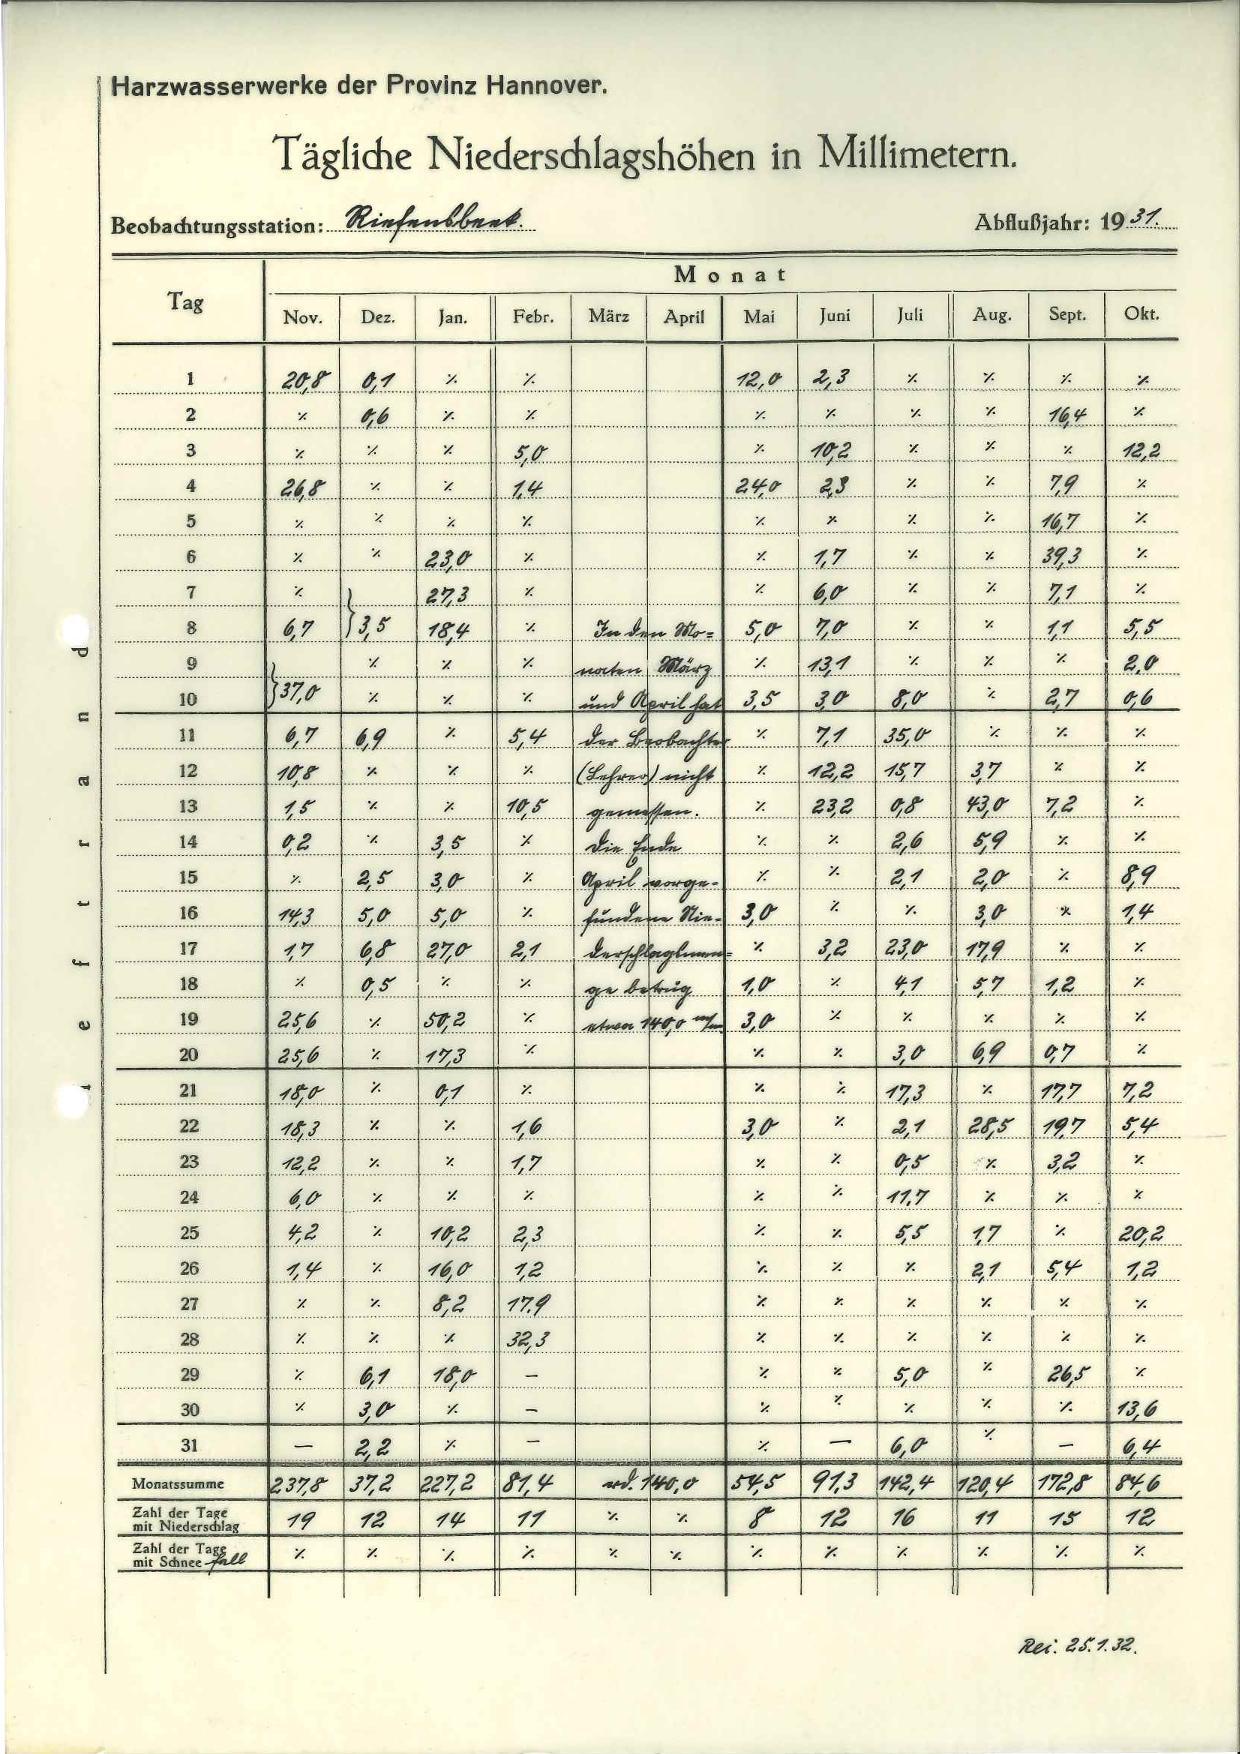 Harzwasserwerke der Provinz Hannover.
Tägliche Niederschlagshöhen in Millimetern.
Beobachtungsstation: Riefensbeek. Abflußjahr: 1931.
Tag Monat
Nov. Dez. Jan. Febr. März April Mai Juni Juli Aug. Sept. Okt.
1 20,8 0,1 ٪ ٪ 12,0 2,3 ٪ ٪ ٪ ٪
2 ٪ 0,6 ٪ ٪ ٪ ٪ ٪ ٪ 16,4 ٪
3 ٪ ٪ ٪ 5,0 ٪ 10,2 ٪ ٪ ٪ 12,2
4 26,8 ٪ ٪ 1,4 24,0 2,3 ٪ ٪ 7,9 ٪
5 ٪ ٪ ٪ ٪ ٪ ٪ ٪ ٪ 16,7 ٪
6 ٪ ٪ 23,0 ٪ ٪ 1,7 ٪ ٪ 39,3 ٪
7 ٪ 27,3 ٪ ٪ 6,0 ٪ ٪ 7,1 ٪
8 6,7 } 3,5 18,4 ٪ In den Mo= 5,0 7,0 ٪ ٪ 1,1 5,5
9 ٪ ٪ ٪ naten März ٪ 13,1 ٪ ٪ ٪ 2,0
10 } 37,0 ٪ ٪ ٪ und April hat 3,5 3,0 8,0 ٪ 2,7 0,6
11 6,7 6,9 ٪ 5,4 der Beobachter ٪ 7,1 35,0 ٪ ٪ ٪
12 10,8 ٪ ٪ ٪ (Lehrer) nicht ٪ 12,2 15,7 3,7 ٪ ٪
13 1,5 ٪ ٪ 10,5 gemessen. ٪ 23,2 0,8 43,0 7,2 ٪
14 0,2 ٪ 3,5 ٪ Die Ende ٪ ٪ 2,6 5,9 ٪ ٪
15 ٪ 2,5 3,0 ٪ April vorge- ٪ ٪ 2,1 2,0 ٪ 8,9
16 14,3 5,0 5,0 ٪ fundene Nie- 3,0 ٪ ٪ 3,0 ٪ 1,4
17 1,7 6,8 27,0 2,1 derschlagsmen= ٪ 3,2 23,0 17,9 ٪ ٪
18 ٪ 0,5 ٪ ٪ ge betrug 1,0 ٪ 4,1 5,7 1,2 ٪
19 25,6 ٪ 50,2 ٪ etwa 140,0 m/m 3,0 ٪ ٪ ٪ ٪ ٪
20 25,6 ٪ 17,3 ٪ ٪ ٪ 3,0 6,9 0,7 ٪
21 18,0 ٪ 0,1 ٪ ٪ ٪ 17,3 ٪ 17,7 7,2
22 18,3 ٪ ٪ 1,6 3,0 ٪ 2,1 28,5 19,7 5,4
23 12,2 ٪ ٪ 1,7 ٪ ٪ 0,5 ٪ 3,2 ٪
24 6,0 ٪ ٪ ٪ ٪ ٪ 11,7 ٪ ٪ ٪
25 4,2 ٪ 10,2 2,3 ٪ ٪ 5,5 1,7 ٪ 20,2
26 1,4 ٪ 16,0 1,2 ٪ ٪ ٪ 2,1 5,4 1,2
27 ٪ ٪ 8,2 17.9 ٪ ٪ ٪ ٪ ٪ ٪
28 ٪ ٪ ٪ 32,3 ٪ ٪ ٪ ٪ ٪ ٪
29 ٪ 6,1 18,0 – ٪ ٪ 5,0 ٪ 26,5 ٪
30 ٪ 3,0 ٪ – ٪ ٪ ٪ ٪ ٪ 13,6
31 — 2,2 ٪ – ٪ — 6,0 ٪ – 6,4
Monatssumme 237,8 37,2 227,2 81,4 rd. 140,0 54,5 91,3 142,4 120,4 172,8 84,6
Zahl der Tage
mit Niederschlag 19 12 14 11 ٪ ٪ 8 12 16 11 15 12
Zahl der Tage
mit Schneefall ٪ ٪ ٪ ٪ ٪ ٪ ٪ ٪ ٪ ٪ ٪ ٪
Rei. 25.1.32.
Heftrand